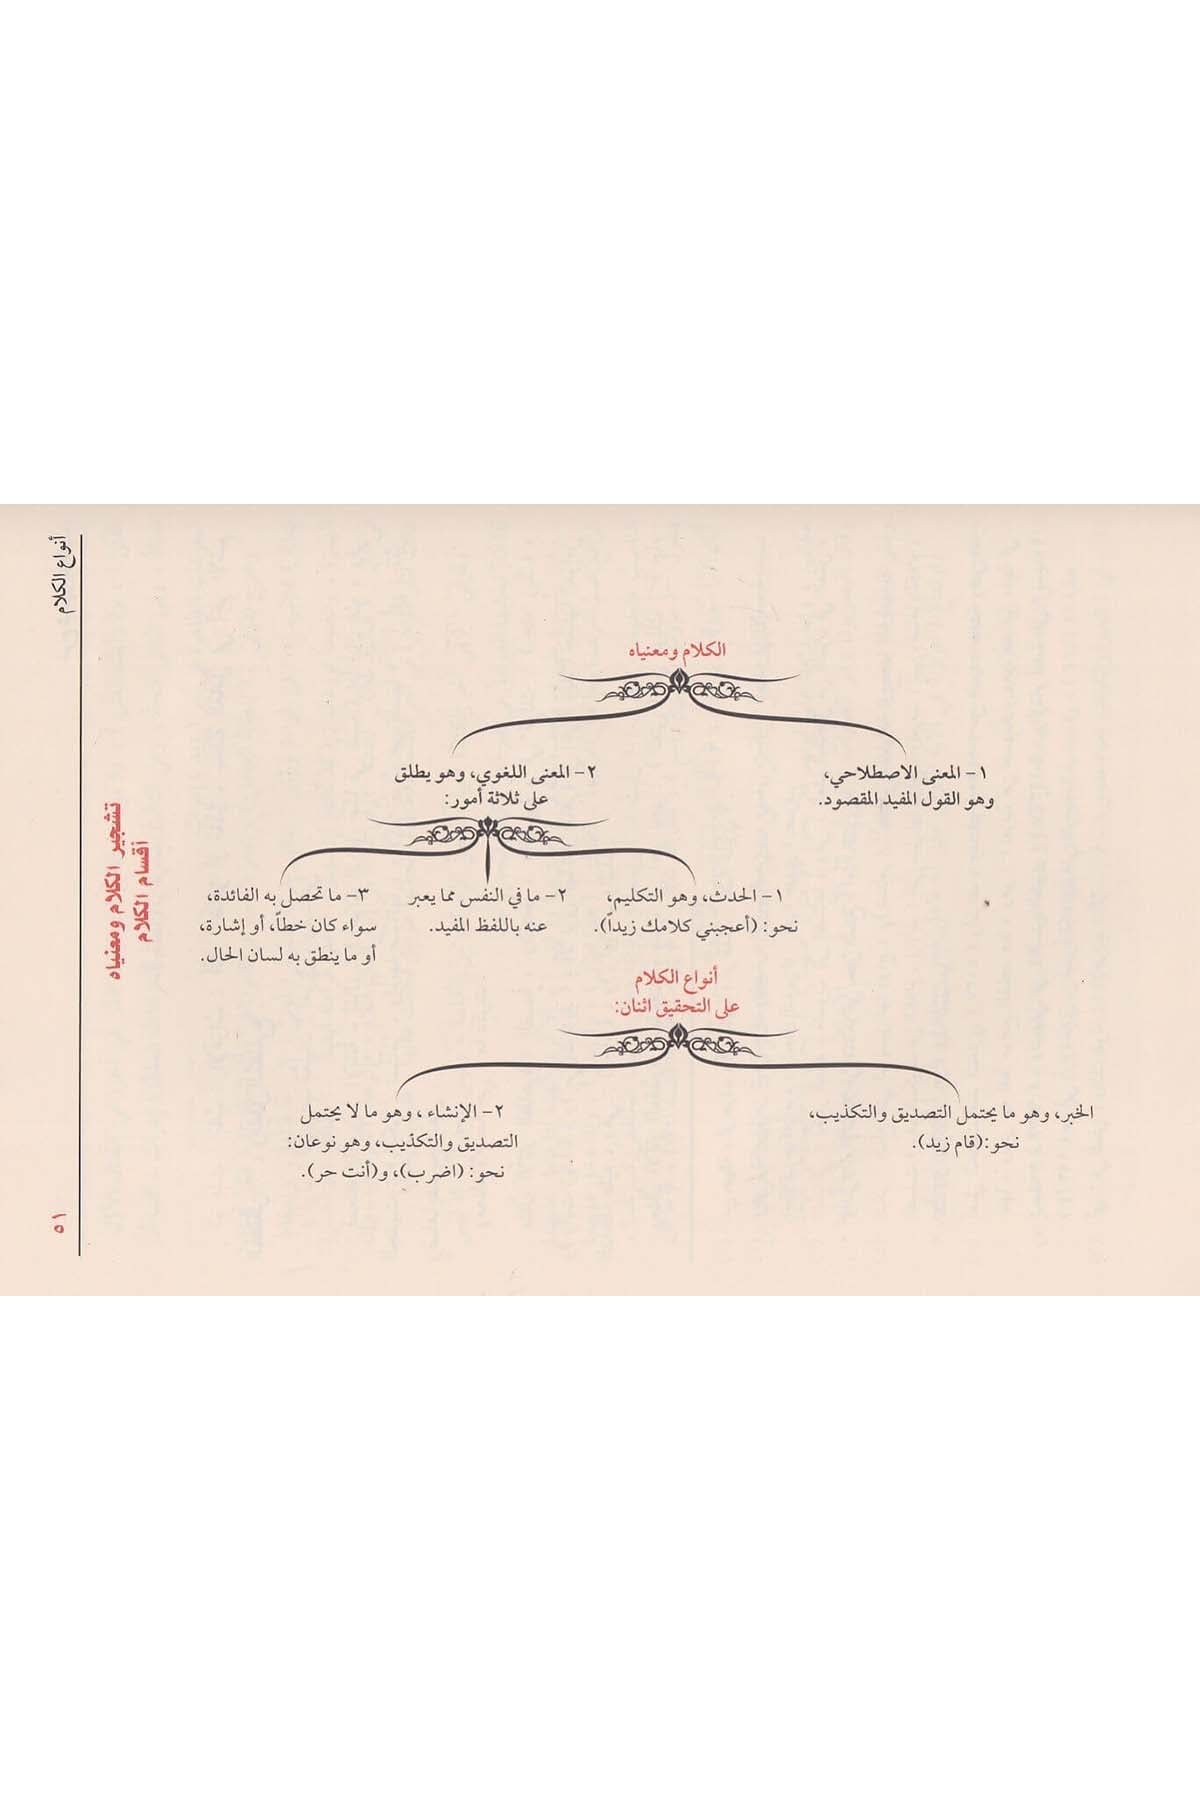 أنواع الكلام
٥١
تشجير الكلام ومعنياه
أقسام الكلام
الكلام ومعنياه
١- المعنى الاصطلاحي،
وهو القول المفيد المقصود.
٢- المعنى اللغوي، وهو يطلق
على ثلاثة أمور:
١- الحدث، وهو التكليم،
نحو: (أعجبني كلامك زيداً).
٢- ما في النفس مما يعبر
عنه باللفظ المفيد.
٣- ما تحصل به الفائدة،
سواء كان خطاً، أو إشارة،
أو ما ينطق به لسان الحال.
أنواع الكلام
على التحقيق اثنان:
الخبر، وهو ما يحتمل التصديق والتكذيب،
نحو:(قام زيد).
٢- الإنشاء، وهو ما لا يحتمل
التصديق والتكذيب، وهو نوعان:
نحو: (اضرب)، و(أنت حر).